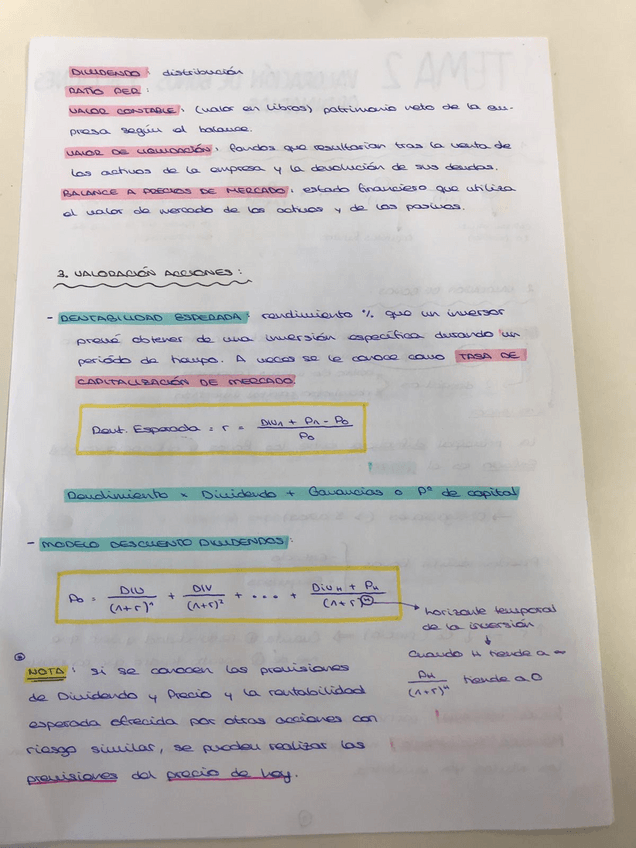 DIVIDENDO: distribución
RATIO PER:
VALOR CONTABLE: (valor en libros) patrimonio neto de la em-
presa según el balance.
VALOR DE LIQUIDACIÓN: fondos que resultarían tras la venta de
los activos de la empresa y la devolución de sus deudas.
BALANCE A PRECIOS DE MERCADO: estado financiero que utiliza
el valor de mercado de los activos y de los pasivos.
3. VALORACIÓN ACCIONES:
- RENTABILIDAD ESPERADA: rendimiento % que un inversor
prevé obtener de una inversión específica durando un
periódo de tiempo. A veces se le conoce como TASA DE
CAPITALIZACIÓN DE MERCADO.
Rent. Esperada = r = (DIV1 + P1 - P0) / P0
Rendimiento x Dividendo + Ganancias o Pª de capital
- MODELO DESCUENTO DIVIDENDOS:
P0 = DIV/(1+r)^1 + DIV/(1+r)^2 + ... + (DIVH + PH)/(1+r)^H
horizonte temporal
de la inversión
Cuando H tiende a ∞
PH/(1+r)^H tiende a 0
NOTA: si se conocen las previsiones
de Dividendo y Precio y la rentabilidad
esperada ofrecida por otras acciones con
riesgo similar, se pueden realizar las
previsiones del precio de hoy.